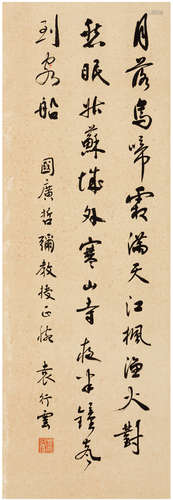 月落烏啼霜滿天江楓漁火對
愁眠姑蘇城外寒山寺夜半鐘聲
到客船
國廣哲彌教授正腕
袁行雲